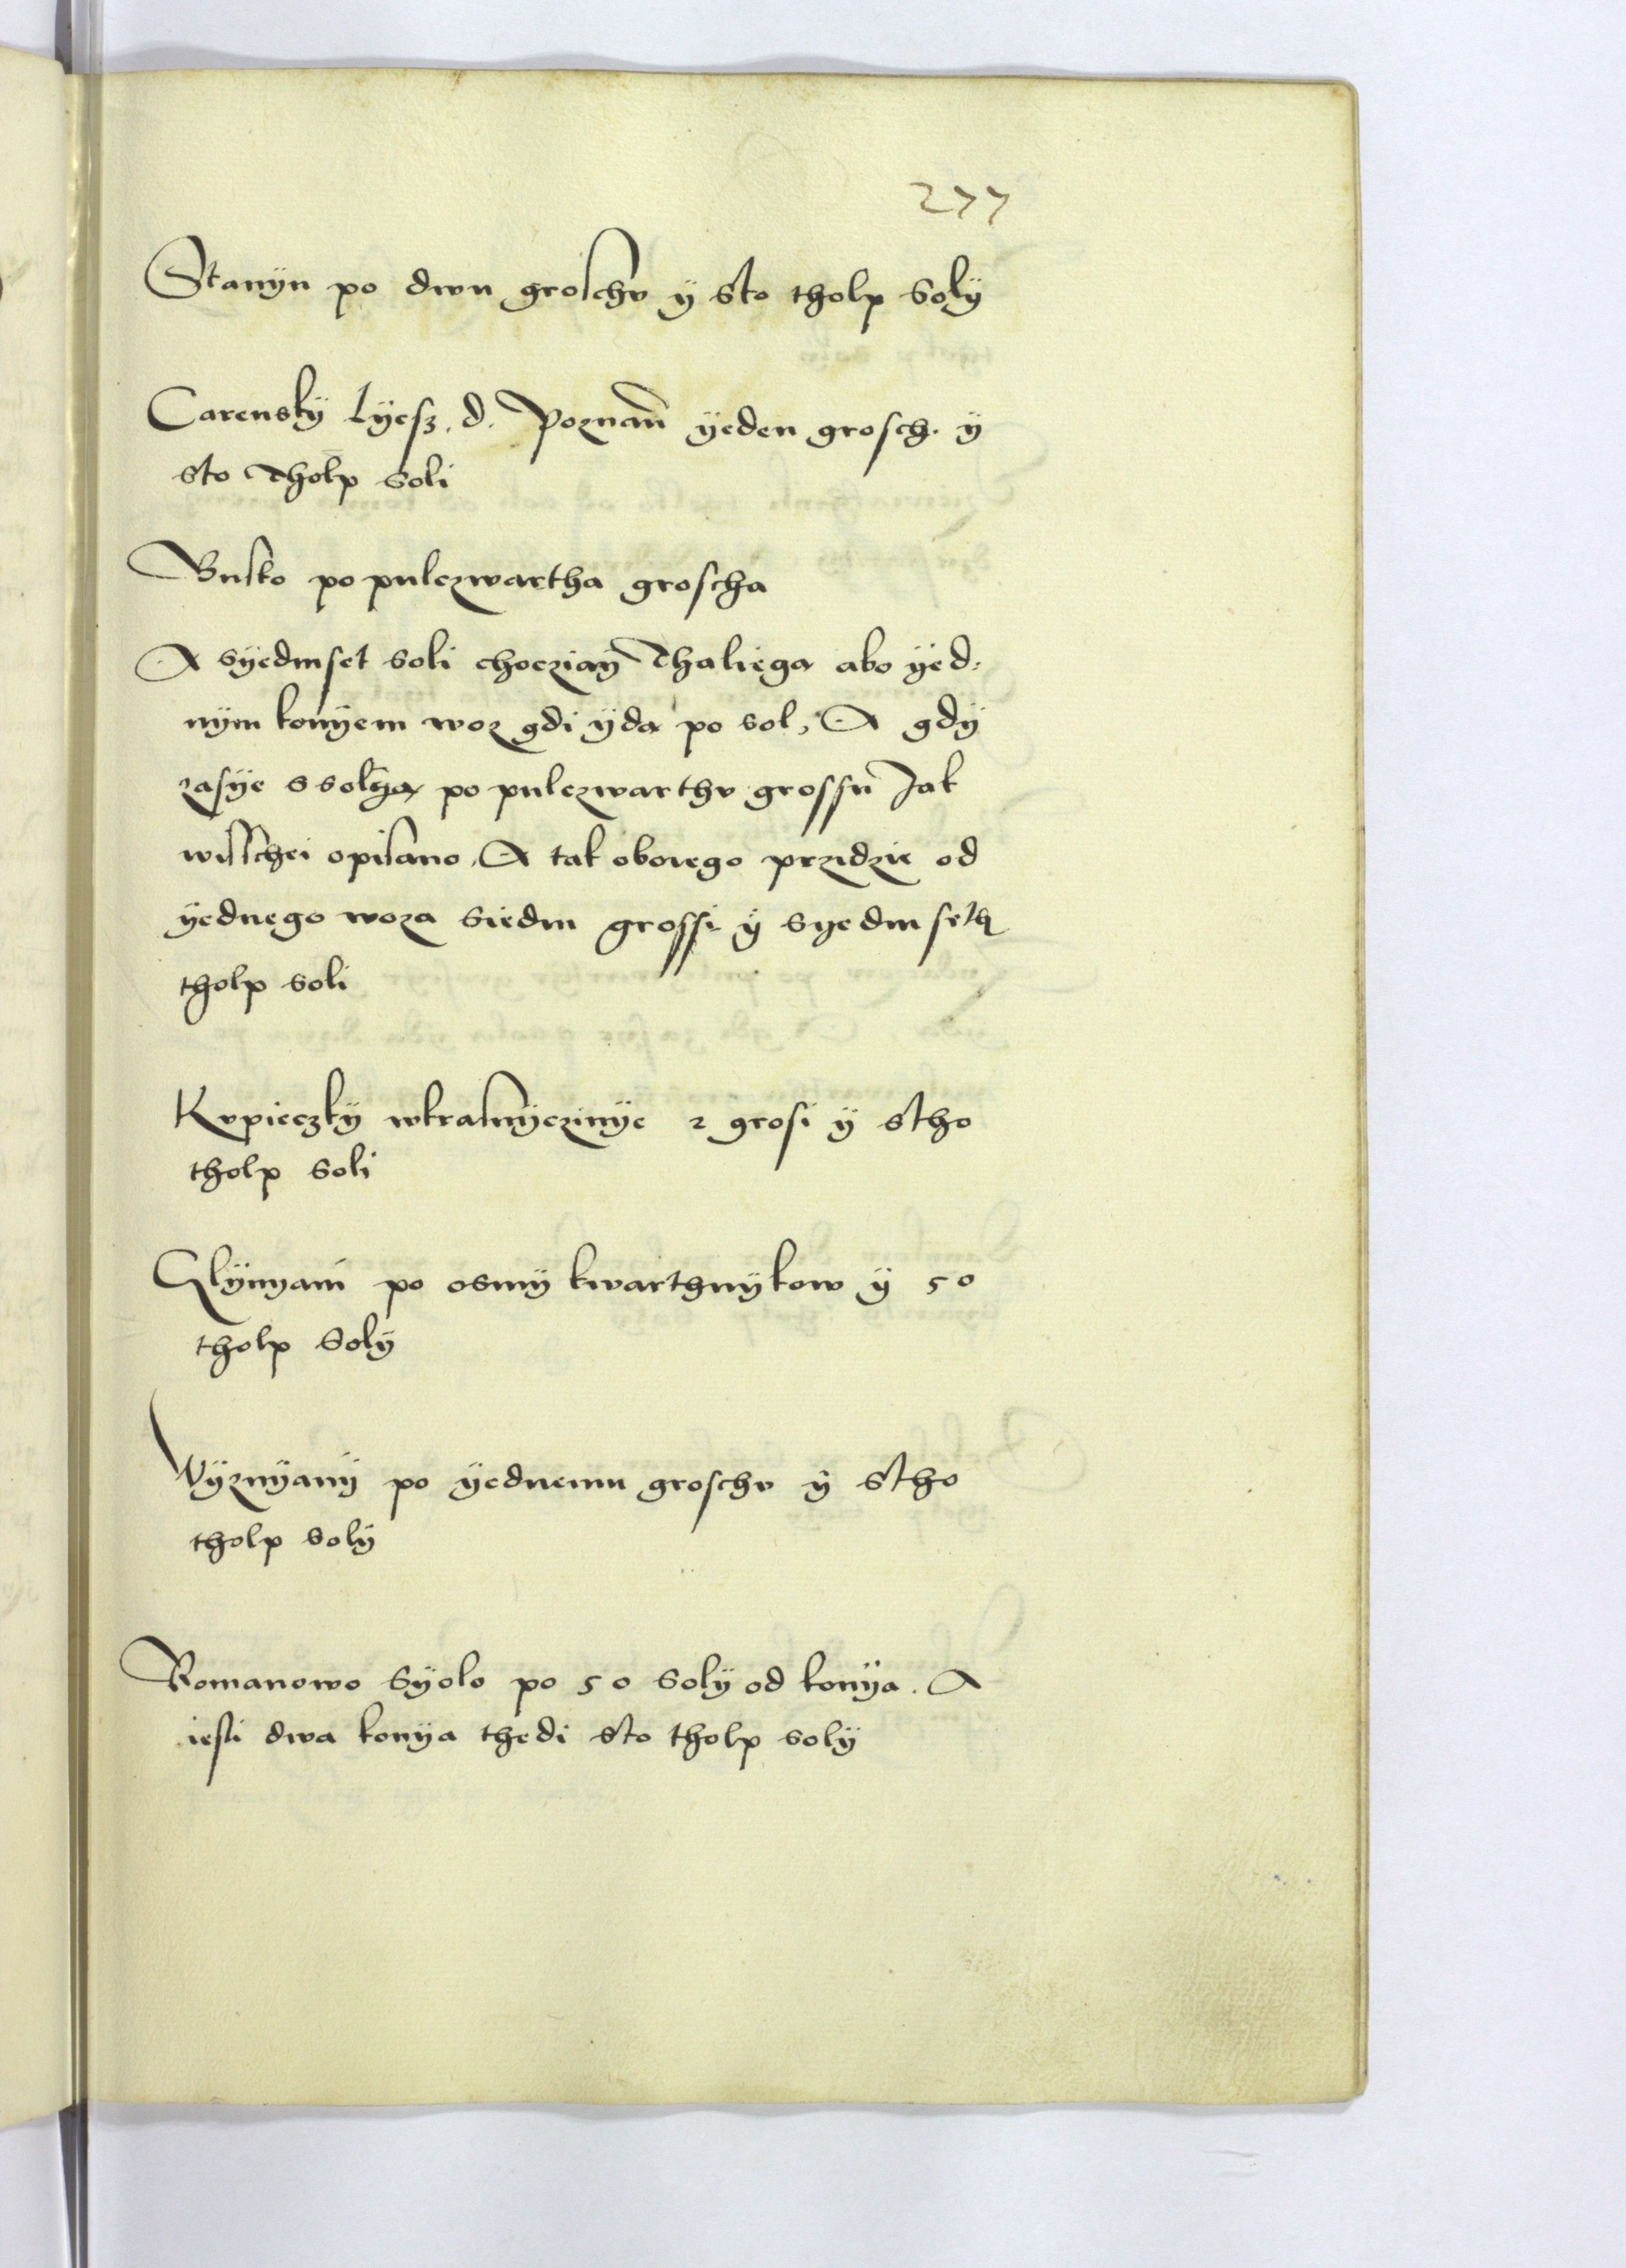 277
Stanÿn po dwu groschv ÿ sto tholp Solÿ
Carenskÿ Lÿesz. d. Poznan̄ ÿeden grosch. ÿ
sto Tholp soli
Busko po pulczwartha groscha
A sÿedmset soli chocziaÿ Thaliega abo ÿed:
nÿm konÿem woz gdi ÿda po sol, A gdÿ
zasÿe s solya po pulczwarthv grossu Jak
wisschei opisano, A tak oboiego przidzie od
ÿednego woza Siedm grossi ÿ syedm seth
tholp soli
Kvpieczkÿ wkrasnÿczinÿe 2 grosi ÿ stho
tholp Soli
Glÿnyani po osmÿ kwarthnÿkow ÿ 50
tholp Solÿ
Vÿznÿanÿ po ÿednemu groschv ÿ stho
tholp solÿ
Romanowo Sÿolo po 50 Solÿ od konÿa. A
iesli dwa konÿa thedi sto tholp solÿ